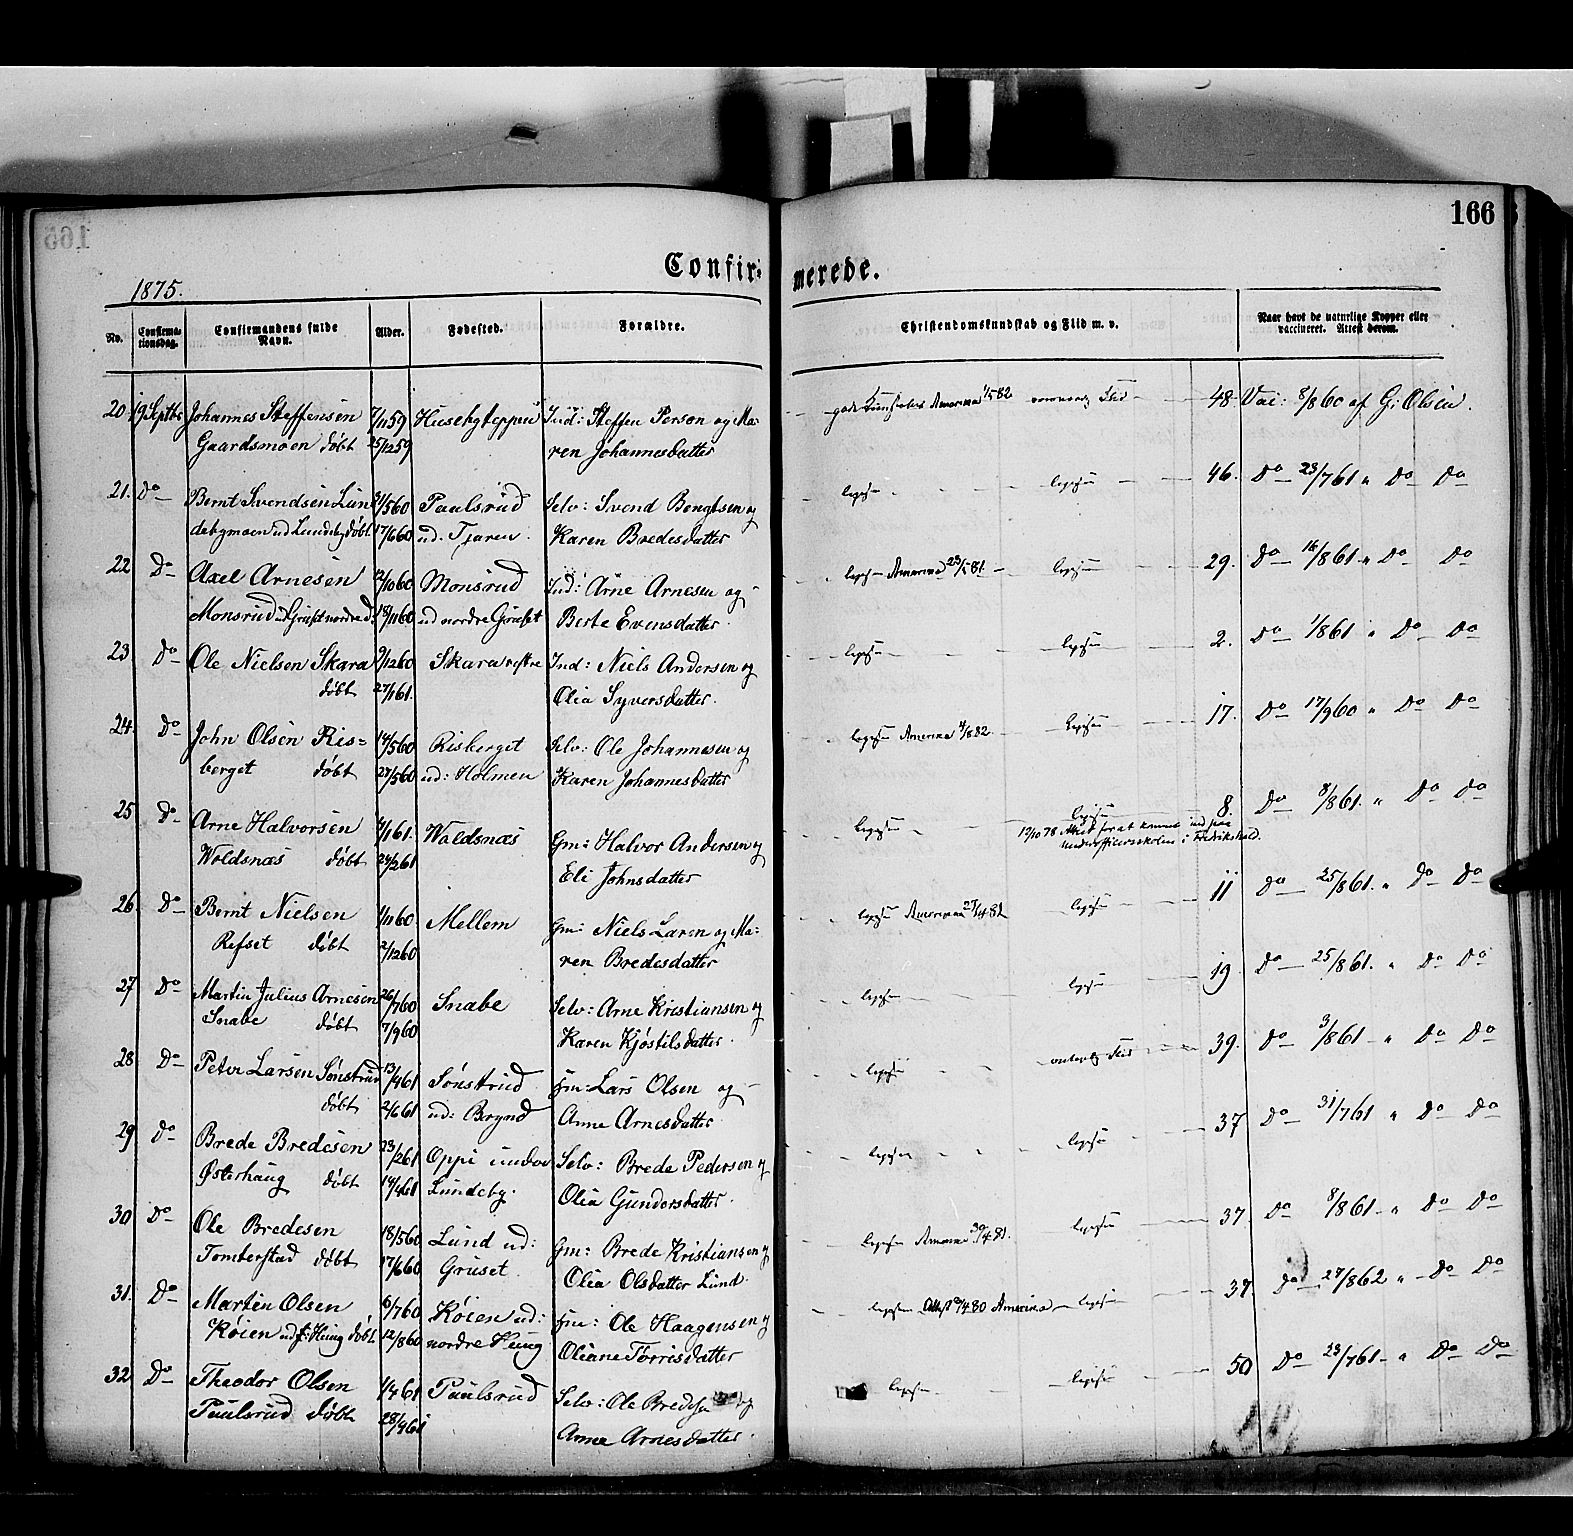 166
Confir= merede.
1875.
No. Confirma-tionsdag. Confirmandens fulde Navn. Alder. Fødested. Forældre. Christendomskundskab og Flid m. v. Naar havt de naturlige Kopper eller vaccineret. Attest derom.
20 19 Septbr Johannes Steffensen 7/11 59 Ind: Steffen Person og Ma= gode Kundskaber Amerika 1/5 82 Flid 48 Vac: 8/8 60 af G: Olsen.
Gaardsmoen døbt 25/12 59 ren Johannesdatter
21. Do Bernt Svendsen Lun 21/5 60 Paulsrud Selv: Svend Bengtsen og ligesaa ligesaa 46. Do 23/7 61 " Do Do
debymoen ud Lundeby døbt 17/6 60 ud. Tjaren. Karen Bredesdatter
22 Do Axel Arnesen 12/10 60 Monsrud Ind: Arne Arnesen og ligesaa Amerika 23/5 81 ligesaa 29. Do 16/8 61 " Do Do
Monsrud ud Gruset nordre d: 18/11 60 ud nordre Gruset Berte Evensdatter.
23 Do Ole Nielsen Skara 9/12 60 Skara vestre Ind: Niels Andersen og ligesaa ligesaa 2. Do 1/8 61 " Do Do
døbt 27/1 61. Olia Syversdatter.
24. Do John Olsen Ris= 14/5 60 Risberget Selv: Ole Johannesen og ligesaa Amerika 4/8 82. ligesaa 17. Do 17/9 60 " Do Do
berget døbt 27/5 60 ud: Holmen Karen Johannesdatter
25 Do Arne Halvorsen 4/1 61. Woldsnæs Gm: Halvor Andersen og ligesaa ligesaa 8. Do 8/8 61. " Do Do
Woldsnæs døbt 24/2 61 Eli Johnsdatter 19/10 78 Attest for at komme ind paa
underofficersskolen i Fredrikshald.
26. Do Bernt Nielsen 1/11 60 Mellem Gm: Niels Laren og Ma= ligesaa Amerika 27/4 82 ligesaa 11 Do 25/8 61. " Do Do
Refset døbt 2/12 60 ren Bredesdatter
27 Do Martin Julius Arnesen 26/7 60 Snabe Selv: Arne Kristiansen og ligesaa ligesaa 19. Do 25/8 61. " Do Do
Snabe døbt 7/9 60 Karen Kjøstilsdatter.
28 Do Peter Larsen Sønstrud 13/4 61 Sønstrud Lars Olsen og ligesaa Flid 39. Do 3/8 61 " Do Do
døbt 2/6 61 ud: Brynd Anne Arnesdatter
29 Do Brede Bredesen 23/2 61 Oppi under Selv: Brede Pedersen og ligesaa ligesaa 37 Do 31/7 61 " Do Do
Østerhaug døbt 14/4 61 Lundeby. Olia Gundersdatter.
30 Do Ole Bredesen 18/5 60 Lund ud: Gm: Brede Kristiansen og ligesaa Amerika 30/4 81. ligesaa 37 Do 8/8 61. " Do Do
Tomterstad døbt 17/6 60 Gruset. Olia Olsdatter Lund.
31. Do Martin Olsen 6/7 60 Køien ud: Ole Haagensen og ligesaa Attest 4 80 Amerika ligesaa 37. Do 27/8 62 " Do Do
Køien døbt 12/8 60 nordre Haug Oliane Tørrisdatter
32 Do Theodor Olsen 1/4 61 Paulsrud Selv: Ole Bredesen og ligesaa ligesaa 50 Do 23/7 61 " Do Do
Paulsrud døbt 28/4 61 Anne Arnesdatter.